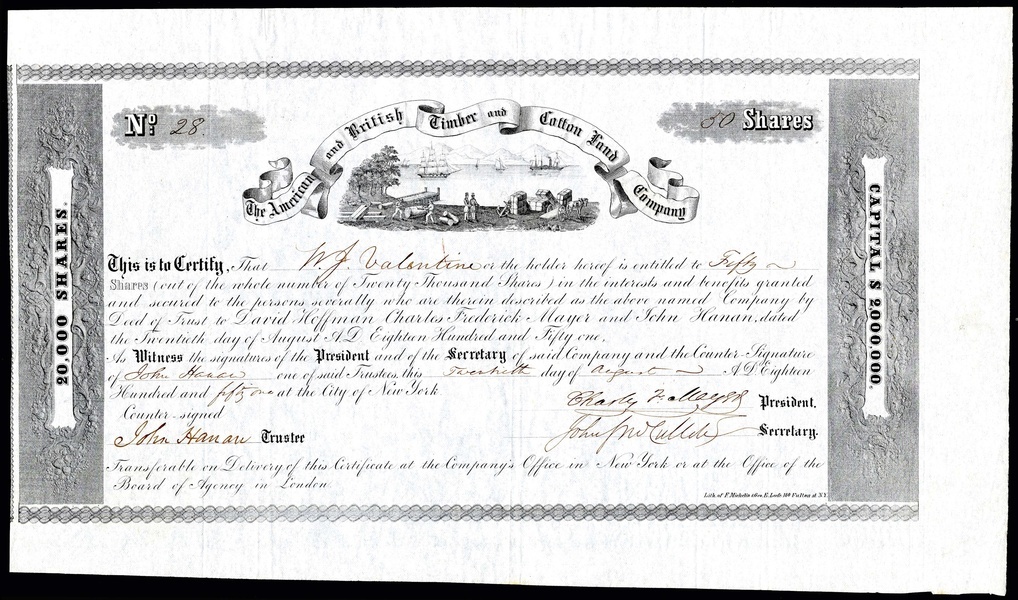 No. 28.
50 Shares
The American and British Timber and Cotton Land Company
20,000 SHARES.
CAPITAL $ 2,000,000.
This is to Certify, That W. J. Valentine or the holder hereof is entitled to Fifty
Shares (out of the whole number of Twenty Thousand Shares) in the interests and benefits granted
and secured to the persons severally who are therein described as the above named Company by
Deed of Trust to David Hoffman Charles Frederick Mayer and John Hanan, dated
the Twentieth day of August A.D. Eighteen Hundred and Fifty one.
As Witness the signatures of the President and of the Secretary of said Company and the Counter-Signature
of John Hanan one of said Trustees, this Twentieth day of August A.D. Eighteen
Hundred and fifty one at the City of New York
Charles F. Mayer President.
Counter-signed
John Hanan Trustee
Secretary.
Transferable on Delivery of this Certificate at the Company's Office in New York or at the Office of the
Board of Agency in London
Lith. of F. Michelin
Fulton st N.Y.